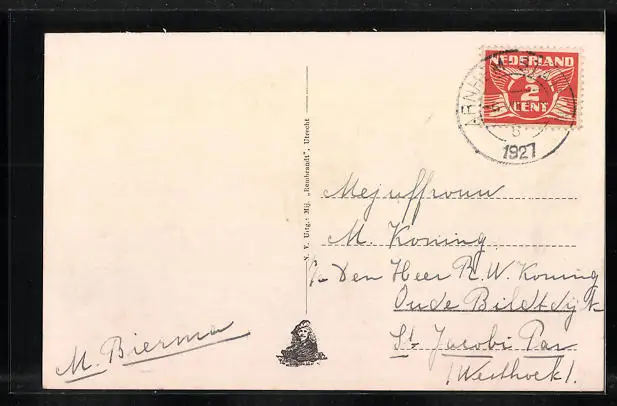 NEDERLAND
½ 2
CENT
ARNHEM
1927
N. V. Uitg.: Mij. „Rembrandt", Utrecht
Mejuffrouw
M. Koning
p/a Den Heer R. W. Koning
Oude Bildtdijk
St. Jacobi Par.
(Westhoek).
M. Bierma